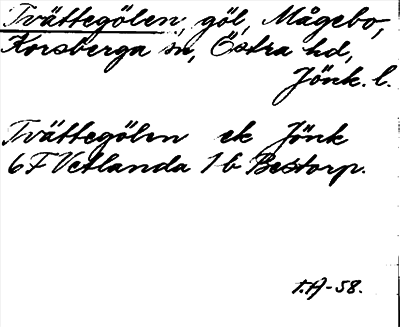 Tvättegölen, göl, Mågebo,
Korsberga sn, Östra hd,
Jönk. l.
Tvättegölen ek Jönk
6F Vetlanda 1b Bestorp.
T.A-58.